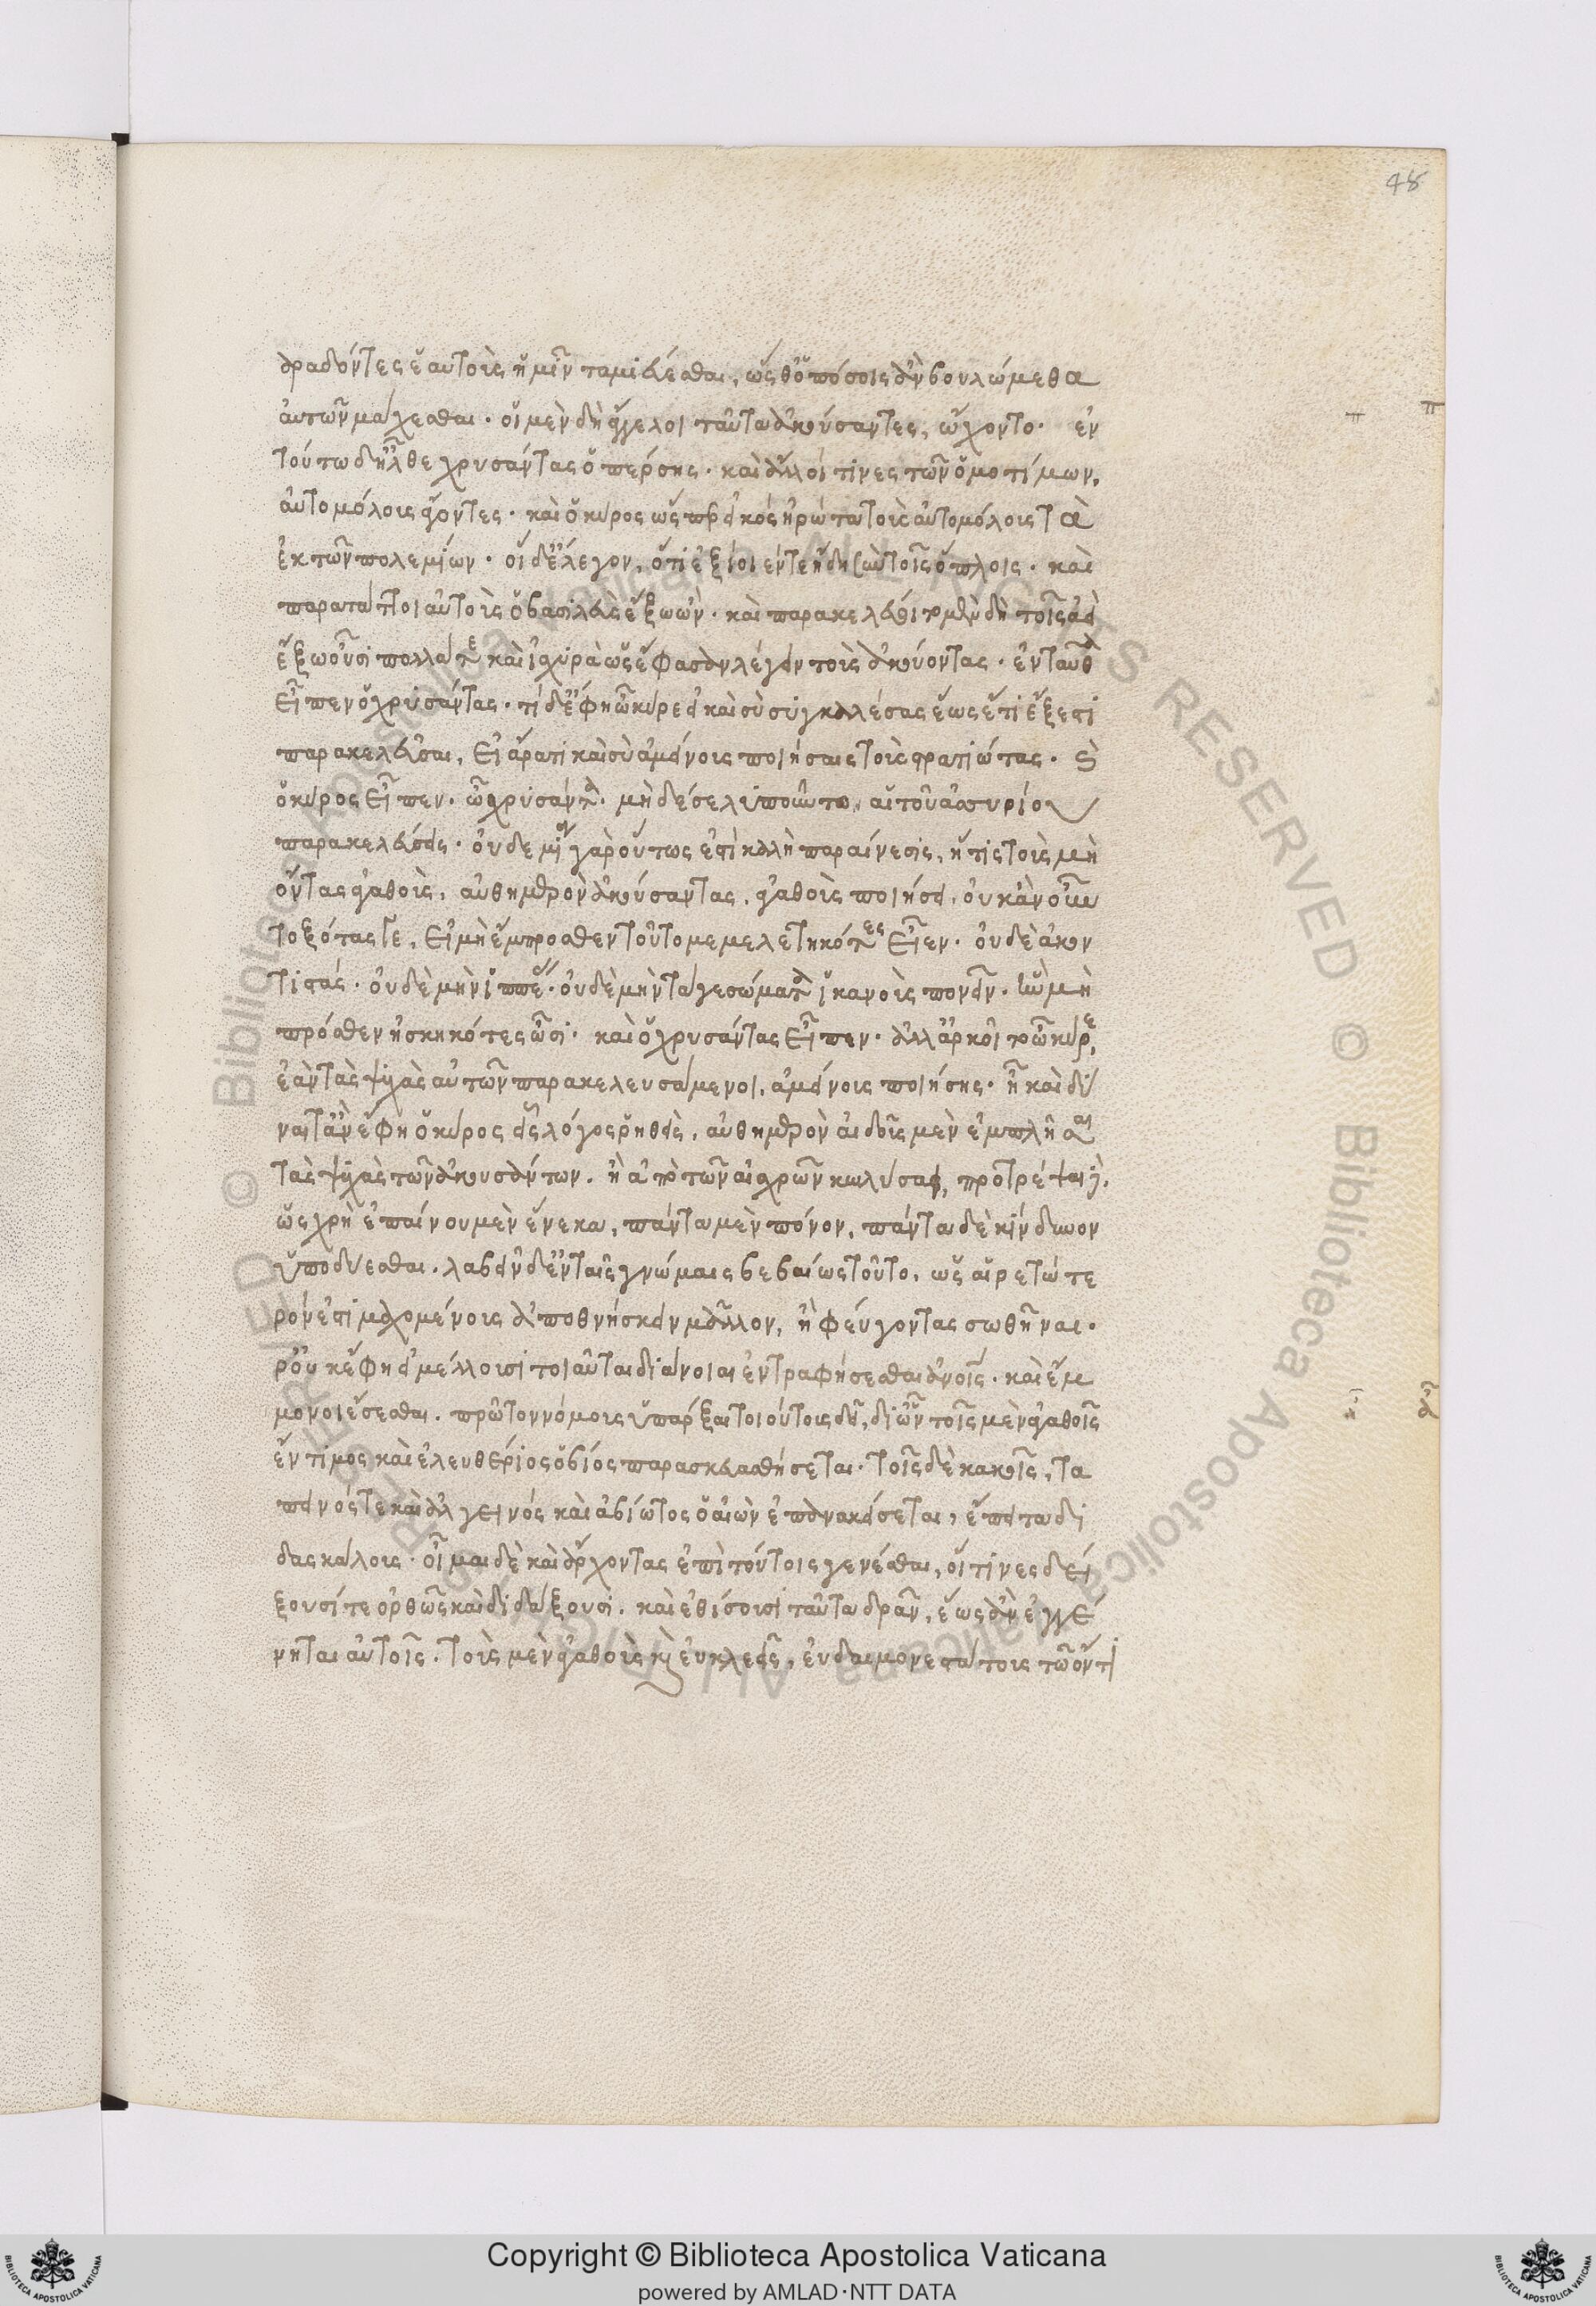 δραδόντες ἑαυτοὺς ἡμῖν ταμιεύεσθαι, ὥσθ' ὁπόσοις ἂν βουλώμεθα
αὐτῶν μάχεσθαι. οἱ μὲν δὴ ἄγγελοι ταῦτα ἀκούσαντες, ᾤχοντο. ἐν
τούτω δ' ἦλθε χρυσάντας ὁ πέρσης. καὶ ἄλλοί τινες τῶν ὁμοτίμων,
αὐτομόλους ἄγοντες. καὶ ὁ κῦρος ὥσπερ εἰκὸς ἠρώτα τοὺς αὐτομόλους τὰ
ἐκ τῶν πολεμίων. οἱ δ' ἔλεγον, ὅτι ἐξίοιέν τε ἤδη σὺν τοῖς ὅπλοις. καὶ
παρατάττοι αὐτοὺς ὁ βασιλεὺς ἔξω ὢν. καὶ παρακελεύοιτο μὲν δὴ τοῖς ἀεὶ
ἔξω οὖσι πολλά τε καὶ ἰσχυρὰ ὡς ἔφασαν λέγειν τοὺς ἀκούοντας. ἐνταῦθα
εἶπεν ὁ χρυσάντας. τί δ' ἔφη ὦ κῦρε εἰ καὶ σὺ συγκαλέσας ἕως ἔτι ἔξεστι
παρακελεύσαι, εἰ ἄρα τι καὶ σὺ ἀμείνους ποιήσαις τοὺς στρατιώτας. καὶ
ὁ κῦρος εἶπεν. ὦ χρυσάντα. μηδέ σε λυπούντων αἱ τοῦ ἀσσυρίου
παρακελεύσεις. οὐδεμία γὰρ οὕτως ἐστὶ καλὴ παραίνεσις, ἥτις τοὺς μὴ
ὄντας ἀγαθοὺς, αὐθημερὸν ἀκούσαντας, ἀγαθοὺς ποιήσει, οὐκ ἂν οὖν
τοξότας γε, εἰ μὴ ἔμπροσθεν τοῦτο μεμελετηκότες εἶεν. οὐδὲ ἀκον
τιστάς. οὐδὲ μὴν ἱππέας. οὐδὲ μὴν τά γε σώματα ἱκανοὺς πονεῖν. ἐὰν μὴ
πρόσθεν ἠσκηκότες ὦσι. καὶ ὁ χρυσάντας εἶπεν. ἀλλ' ἀρκεῖ τοι ὦ κῦρε,
ἐὰν τὰς ψυχὰς αὐτῶν παρακελευσάμενοι, ἀμείνους ποιήσης. ἦ καὶ δύ
ναιτ' ἂν ἔφη ὁ κῦρος εἷς λόγος ῥηθεὶς, αὐθημερὸν αἰδοῦς μὲν ἐμπλῆσαι
τὰς ψυχὰς τῶν ἀκουσάντων. ἢ ἀπὸ τῶν αἰσχρῶν κωλύσαι, προτρέψαι δὲ,
ὡς χρὴ ἐπαίνου μὲν ἕνεκα, πάντα μὲν πόνον, πάντα δὲ κίνδυνον
ὑποδύεσθαι. λαβεῖν δ' ἐν ταῖς γνώμαις βεβαίως τοῦτο, ὡς αἱρετώτε
ρόν ἐστι μαχομένους ἀποθνήσκειν μᾶλλον, ἢ φεύγοντας σωθῆναι.
ἆρ' οὐκ ἔφη εἰ μέλλουσι τοιαῦται διάνοιαι ἐντραφήσεσθαι ἀνοις. καὶ ἔμ
μονοι ἔσεσθαι. πρῶτον νόμους ὑπάρξαι τοιούτους δεῖ, δι' ὧν τοῖς μὲν ἀγαθοῖς
ἔντιμος καὶ ἐλευθέριος ὁ βίος παρασκευασθήσεται. τοῖς δὲ κακοῖς, τα
πεινός τε καὶ ἀλγεινός καὶ ἀβίωτος ὁ αἰὼν ἐπανακείσεται, ἔπειτα δι
δασκάλους. οἶμαι δὲ καὶ ἄρχοντας ἐπὶ τούτοις γενέσθαι, οἵτινες δεί
ξουσί τε ὀρθῶς καὶ διδάξουσι. καὶ ἐθίσουσι ταῦτα δρᾶν, ἕως ἂν ἐγγέ
νηται αὐτοῖς. τοὺς μὲν ἀγαθοὺς καὶ εὐκλεεῖς, εὐδαιμονεστάτους τῶ ὄντι